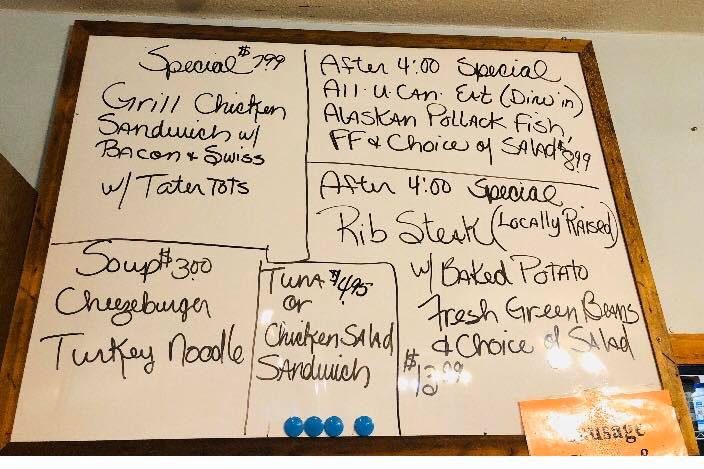 Special $7.99
Grill Chicken
Sandwich w/
Bacon & Swiss
w/ Tater Tots
After 4:00 Special
All-U-Can-Eat (Dine in)
Alaskan Pollack Fish,
FF & Choice of Salad $8.99
After 4:00 Special
Rib Steak (Locally Raised)
w/ Baked Potato
Fresh Green Beans
& Choice of Salad
Soup $3.00
Cheezeburger
Turkey Noodle
Tuna $4.95
or
Chicken Salad
Sandwich